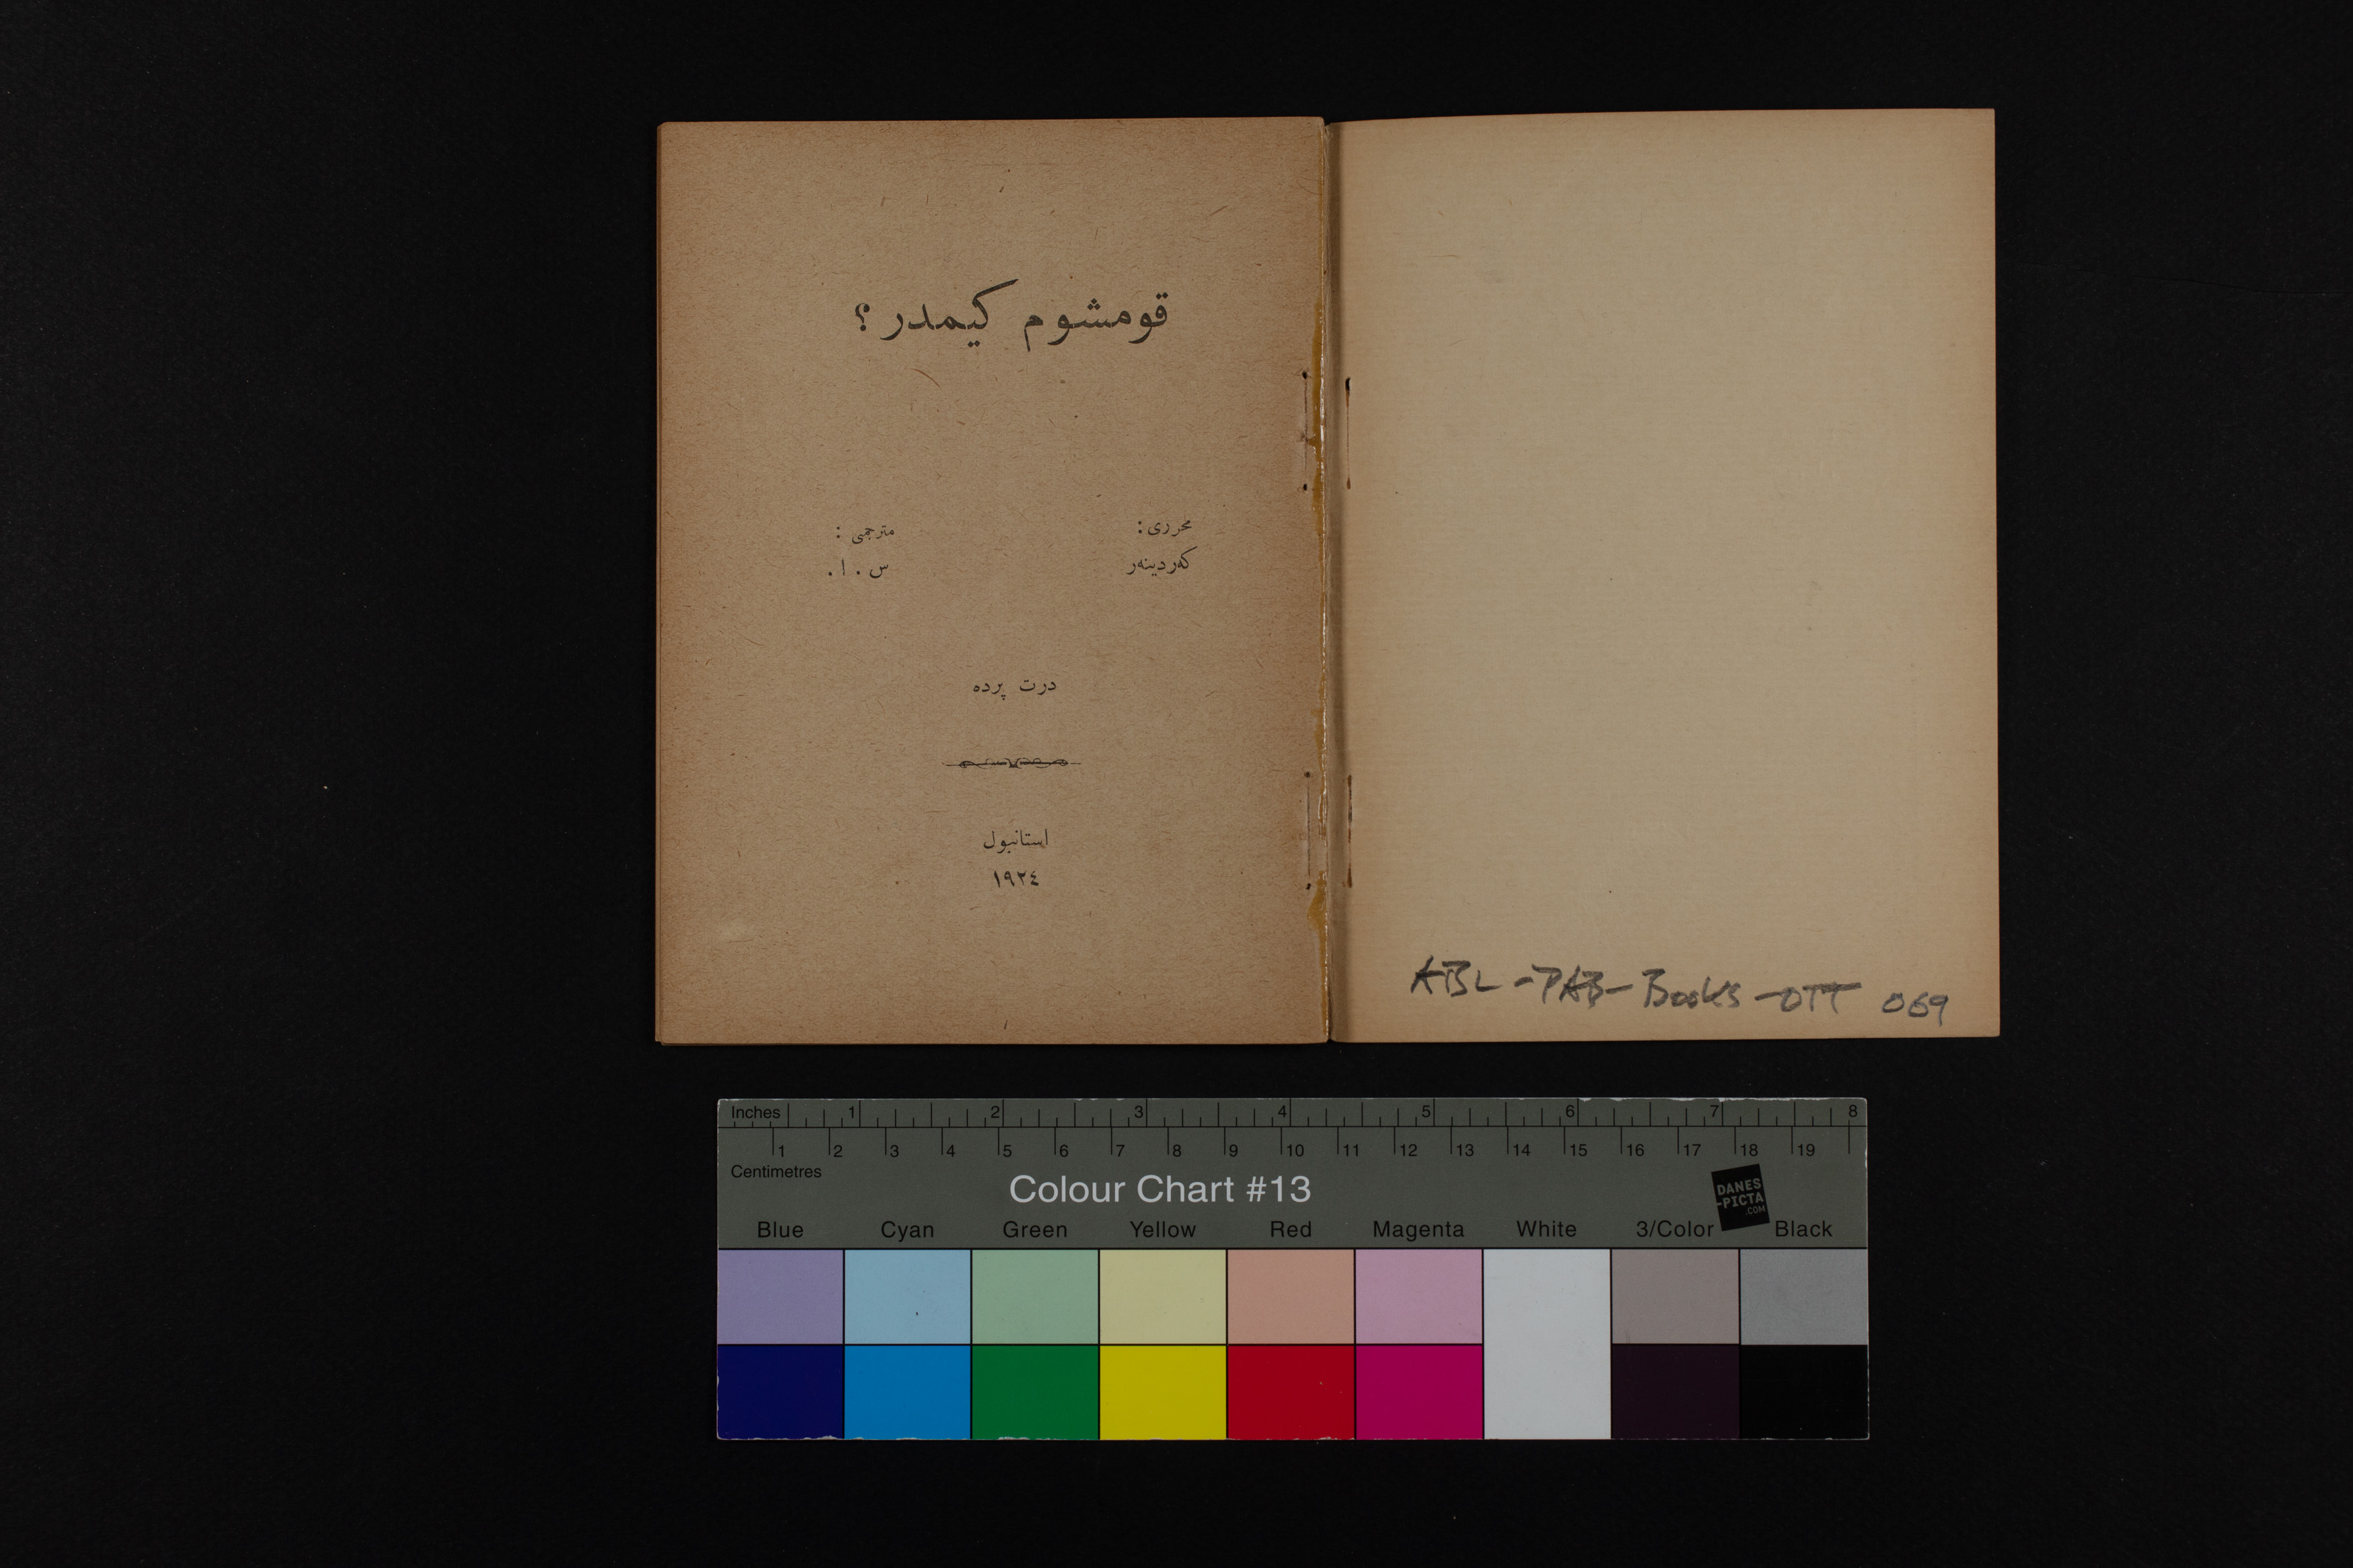 قومشوم كيمدر ؟
محررى :
كه‌ردينه‌ر
مترجمى :
س . ا .
درت پرده
استانبول
١٩٢٤
ABL-PAB-Books-OTT 069
Inches 1 2 3 4 5 6 7 8
1 2 3 4 5 6 7 8 9 10 11 12 13 14 15 16 17 18 19
Centimetres
Colour Chart #13
DANES
-PICTA
.COM
Blue Cyan Green Yellow Red Magenta White 3/Color Black